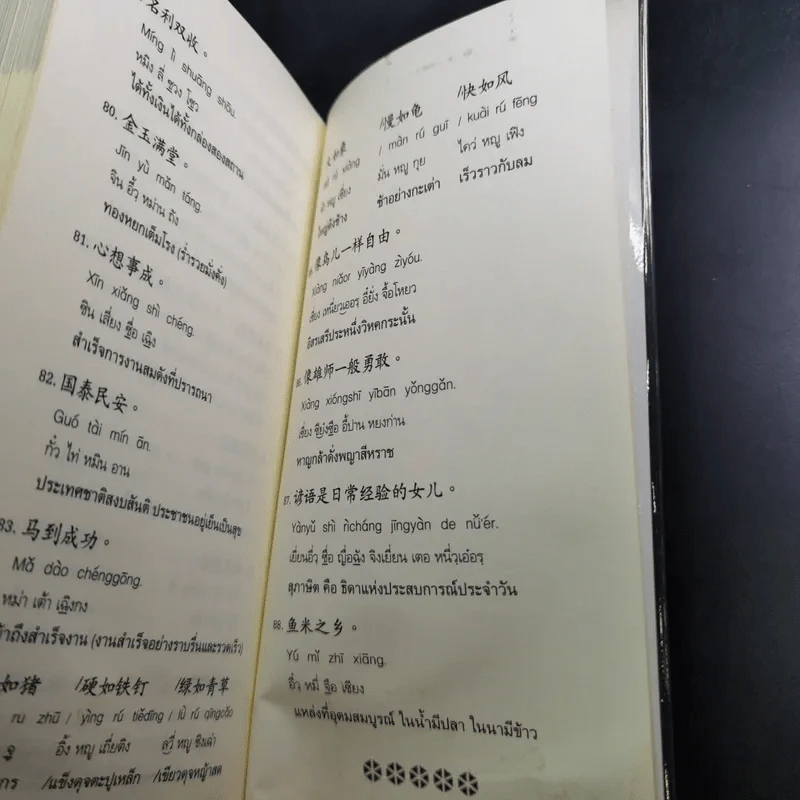 名利双收。
Míng lì shuāng shōu.
หมิง ลี่ ซวง โซว
ได้ทั้งเงินได้ทั้งกล่องสองสถาน
80. 金玉满堂。
Jīn yù mǎn táng.
จิน อวี้ หม่าน ถัง
ทองหยกเต็มโรง (ร่ำรวยมั่งคั่ง)
81. 心想事成。
Xīn xiǎng shì chéng.
ซิน เสี่ยง ซื่อ เฉิง
สำเร็จการงานสมดังที่ปรารถนา
82. 国泰民安。
Guó tài mín ān.
กั๋ว ไท่ หมิน อาน
ประเทศชาติสงบสันติ ประชาชนอยู่เย็นเป็นสุข
83. 马到成功。
Mǎ dào chénggōng.
หม่า เต้า เฉิงกง
ถึงสำเร็จงาน (งานสำเร็จอย่างราบรื่นและรวดเร็ว)
如猪 /硬如铁钉 /绿如青草
rú zhū / yìng rú tiědīng / lǜ rú qīngcǎo
อิ้ง หญู เถี่ยติง ลวี่ หญู ชิงเฉ่า
/แข็งดุจตะปูเหล็ก /เขียวดุจหญ้าสด
如象 /慢如龟 /快如风
rú xiàng / màn rú guī / kuài rú fēng
หญู เซี่ยง มั่น หญู กุย ไคว่ หญู เฟิง
ใหญ่ดังช้าง ช้าอย่างกะเต่า เร็วราวกับลม
像鸟儿一样自由。
Xiàng niǎor yīyàng zìyóu.
เซี่ยง เหนี่ยวเออร อี๋ยั่ง จื้อโหยว
อิสรเสรีประหนึ่งวิหคกระนั้น
86. 像雄师一般勇敢。
Xiàng xióngshī yībān yǒnggǎn.
เซี่ยง ซีย๋งซือ อี้ปาน หยงก่าน
หาญกล้าดั่งพญาสีหราช
87. 谚语是日常经验的女儿。
Yànyǔ shì rìcháng jīngyàn de nǚ'ér.
เยี่ยนอวี่ ซื่อ ญื่อฉัง จิงเยี่ยน เตอ หนี่วเอ๋อร
สุภาษิต คือ ธิดาแห่งประสบการณ์ประจำวัน
88. 鱼米之乡。
Yú mǐ zhī xiāng.
อวี๋ หมี่ จือ เซียง
แหล่งที่อุดมสมบูรณ์ ในน้ำมีปลา ในนามีข้าว